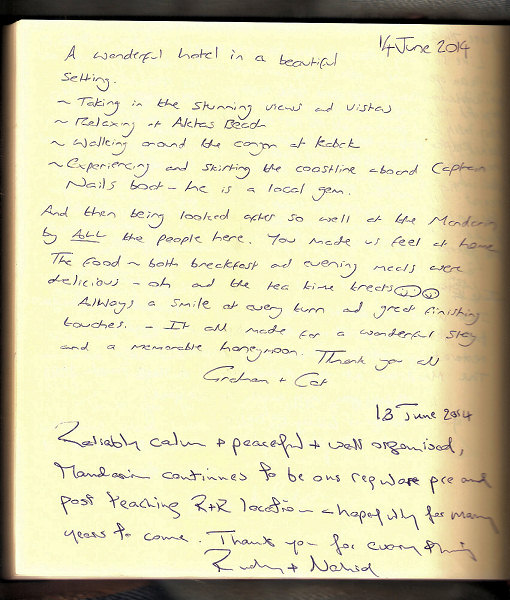 14 June 2014
A wonderful hotel in a beautiful
setting.
~ Taking in the stunning views and vistas
~ Relaxing at Aktas Beach
~ Walking around the canyon at Kabak
~ Experiencing and skirting the coastline aboard Captain
Nails boat - he is a local gem.
And then being looked after so well at the Mandarin
by ALL the people here. You made us feel at home
The food ~ both breakfast and evening meals were
delicious - oh and the tea time treats
Always a smile at every turn and great finishing
touches. - It all made for a wonderful stay
and a memorable honeymoon. Thank you all
Graham + Cat
13 June 2014
Reliably calm + peaceful + well organised,
Mandarin continues to be our regular pre and
post teaching R+R location - hopefully for many
years to come. Thank you for everything
Rudy + Nahid